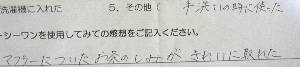 洗濯機に入れた　5、その他（　手洗いの時に使った
ーシーワンを使用してみての感想をご記入ください。
マフラーについたお茶のしみが きれいに取れた